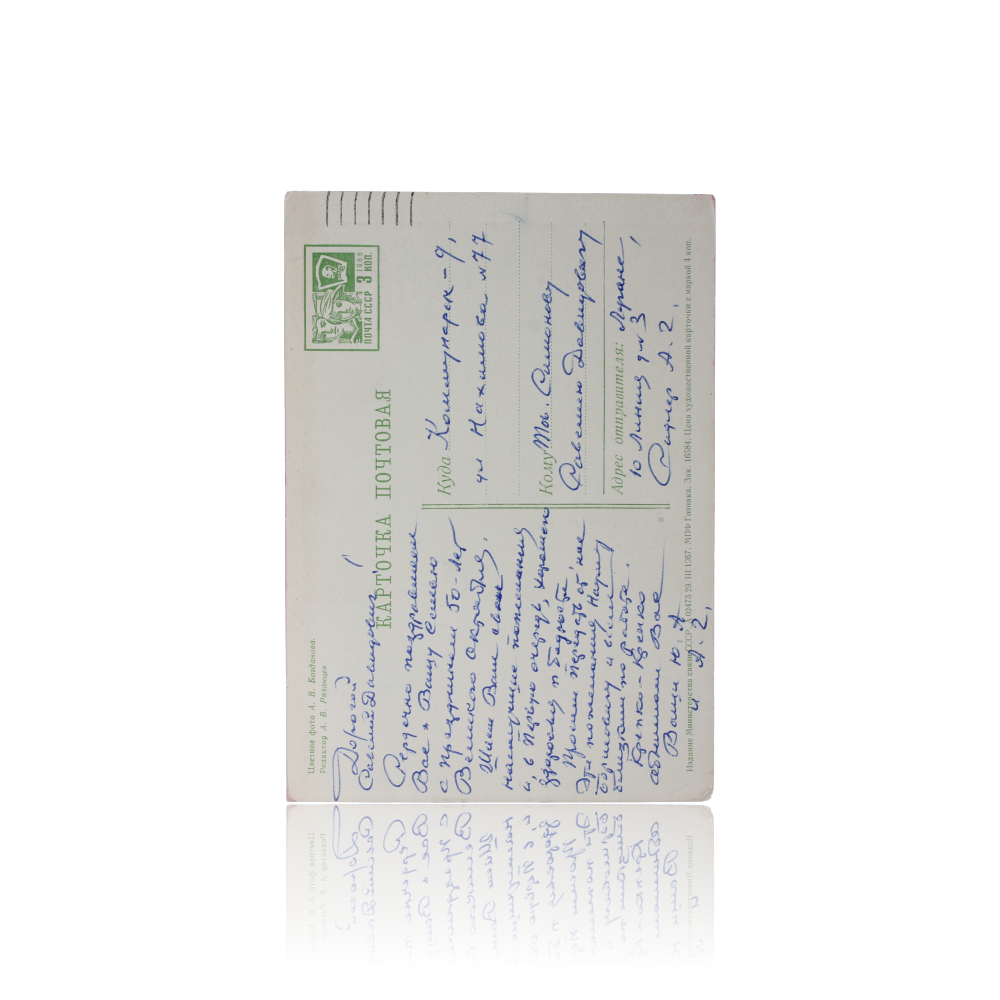 Цветное фото А. В. Богданова.
Редактор А. В. Рязанцев
КАРТОЧКА ПОЧТОВАЯ
ПОЧТА СССР 3 КОП.
1966
Дорогой
Савелий Давидович!
Сердечно поздравляем
Вас и Вашу Семью
с Праздником 50-лет
Великого Октября.
Шлем Вам свои
наилучшие пожелания
и, в Первую очередь, хорошего
здоровья и бодрости.
Просим Передать от нас
Эти пожелания
Борисовичу и всем
близким по работе.
Крепко-Крепко
обнимаем Вас
Ваши Ю
и А. Г.
Куда Коммунарск-9,
ул Нахимова № 77
Кому Тов. Симонову
Савелию Давидовичу
Адрес отправителя: Луганск,
10 Линия д № 3
А. Г.
Издание Министерства связи СССР. А 02473 29. III 1967. МПФ Гознака. Зак. 16584. Цена художественной карточки с маркой 4 коп.